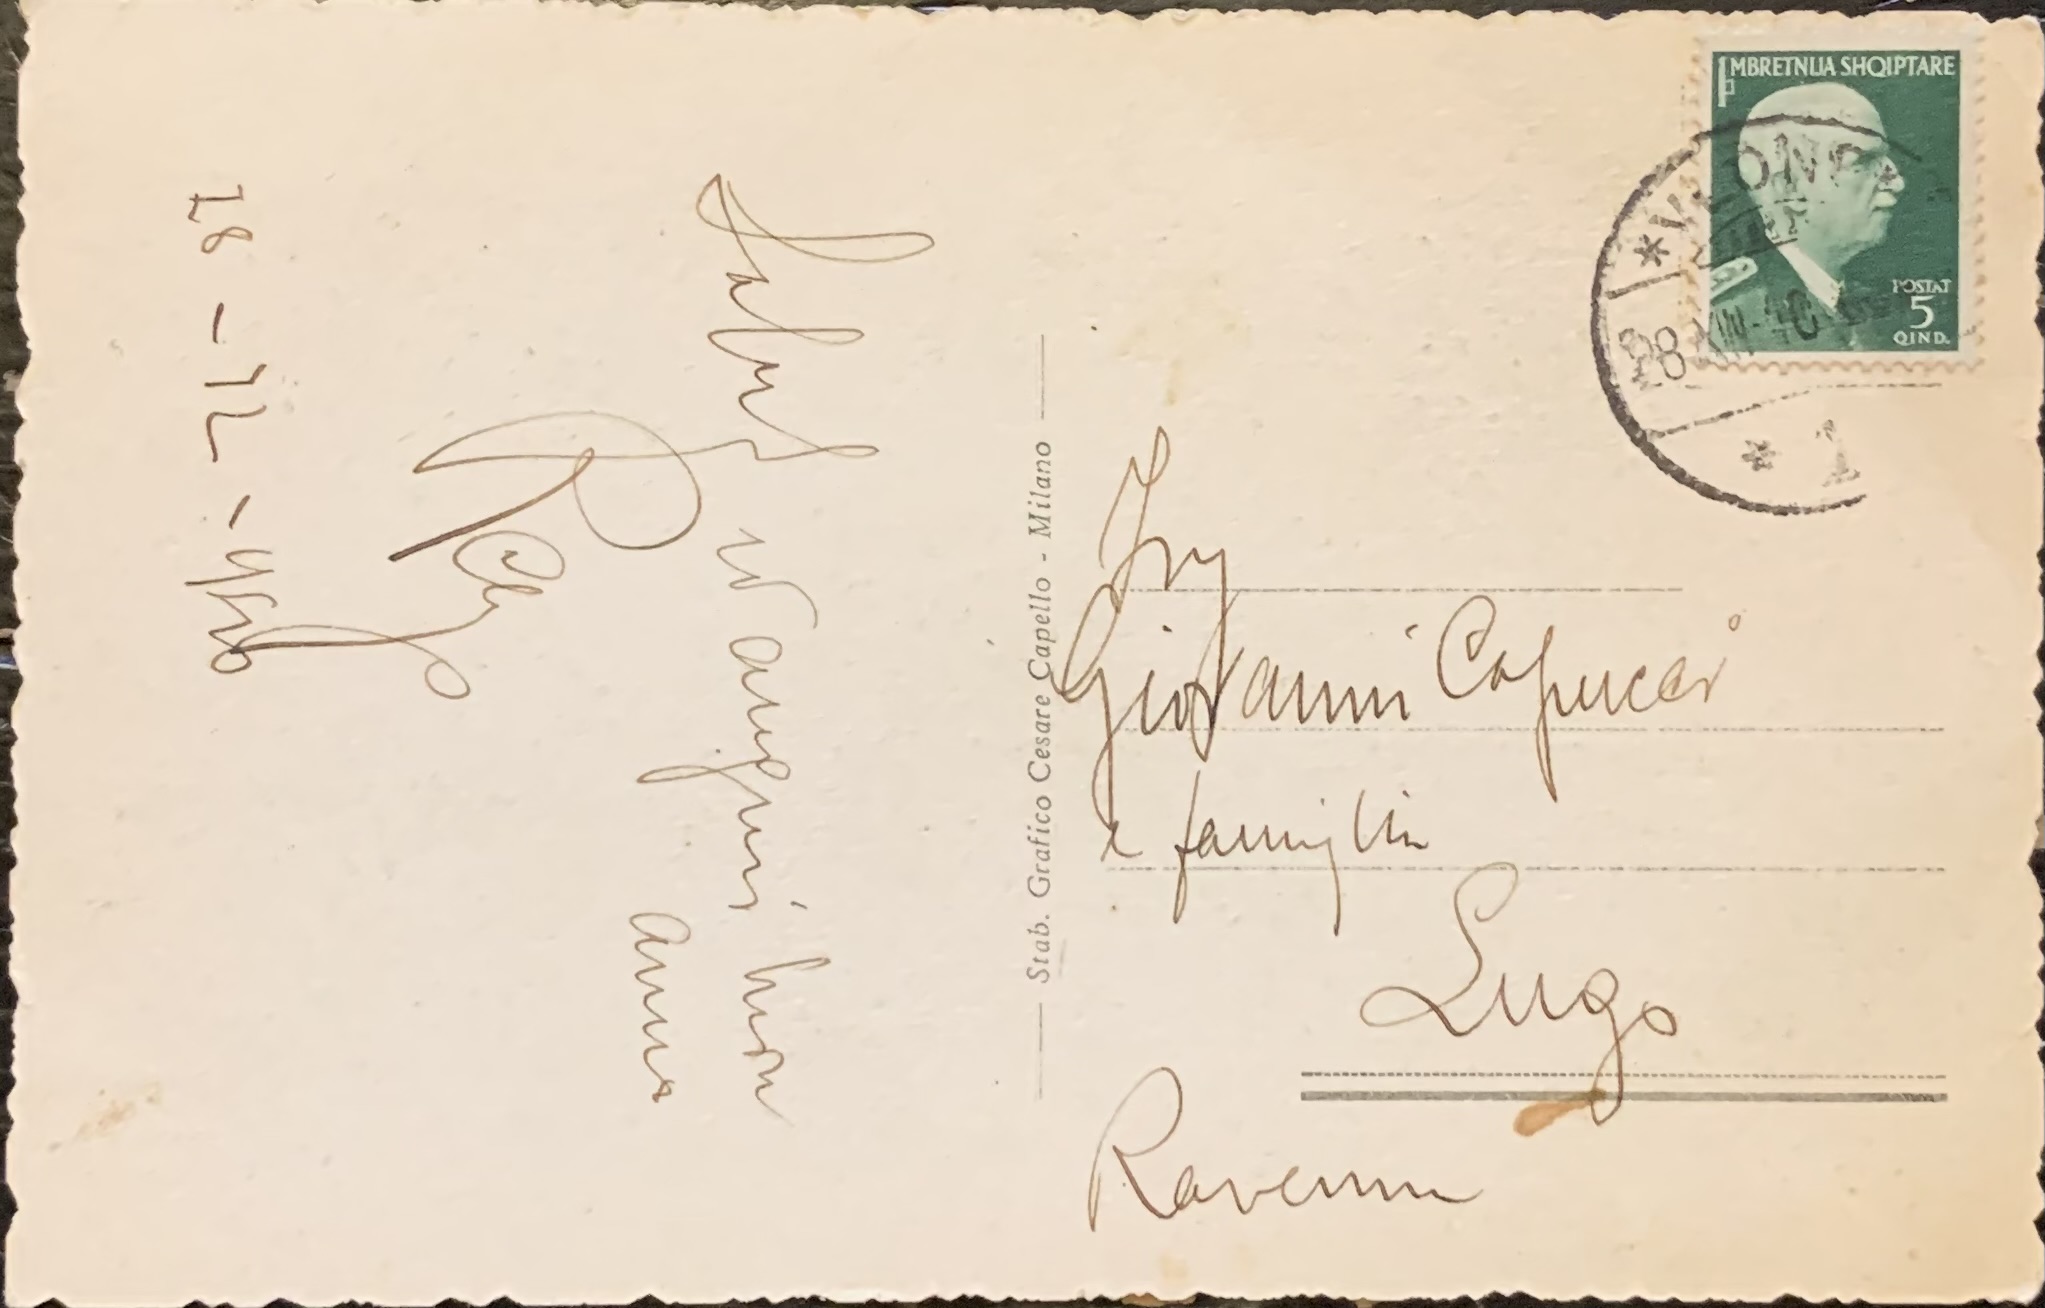 MBRETNIJA SHQIPTARE
POSTAT
5
QIND.
28 XII-40
1
Saluti
auguri buon
anno
28-12-940
Stab. Grafico Cesare Capello - Milano
Ing
Giovanni Capucci
e famiglia
Lugo
Ravenna